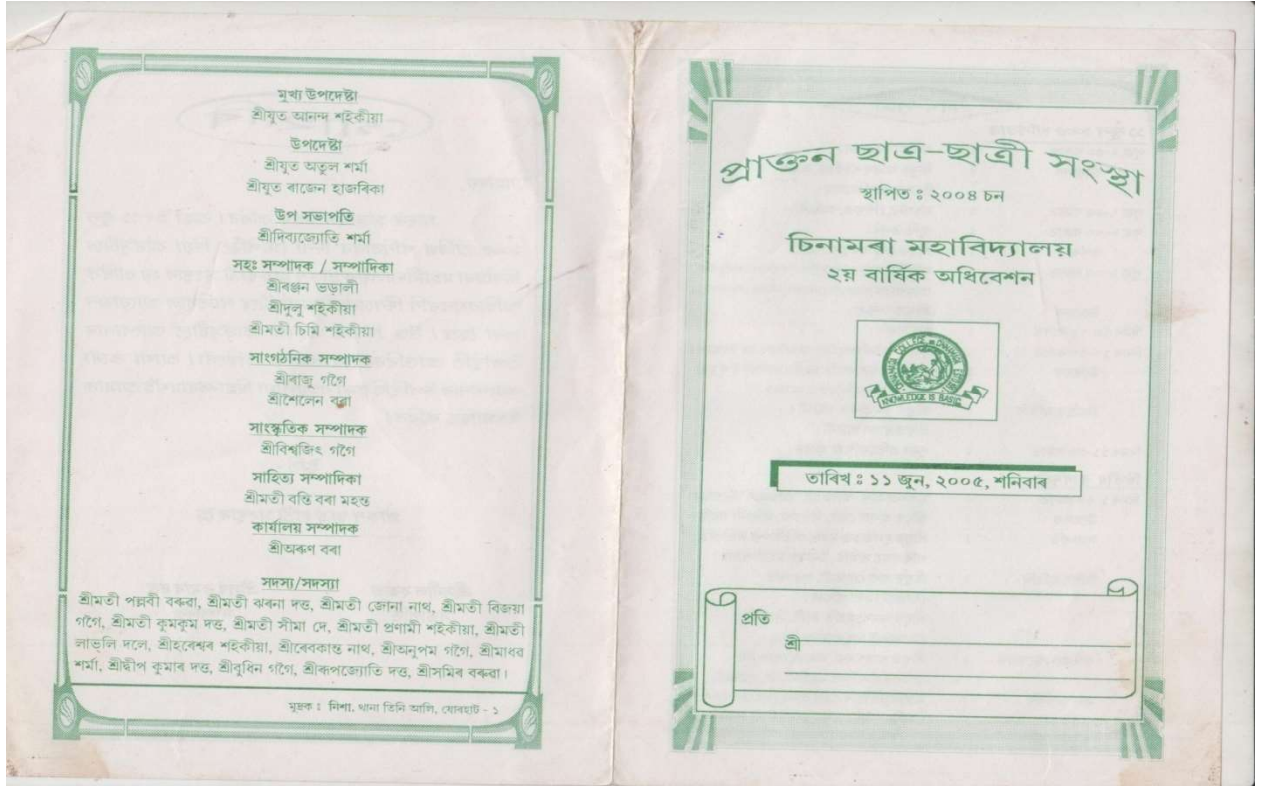 মুখ্য উপদেষ্টা
শ্ৰীযুত আনন্দ শইকীয়া
উপদেষ্টা
শ্ৰীযুত অতুল শৰ্মা
শ্ৰীযুত ৰাজেন হাজৰিকা
উপ সভাপতি
শ্ৰীদিব্যজ্যোতি শৰ্মা
সহঃ সম্পাদক / সম্পাদিকা
শ্ৰীৰঞ্জন ভড়ালী
শ্ৰীদুলু শইকীয়া
শ্ৰীমতী চিমি শইকীয়া
সাংগঠনিক সম্পাদক
শ্ৰীৰাজু গগৈ
শ্ৰীশৈলেন বৰা
সাংস্কৃতিক সম্পাদক
শ্ৰীবিশ্বজিৎ গগৈ
সাহিত্য সম্পাদিকা
শ্ৰীমতী বন্তি বৰা মহন্ত
কাৰ্যালয় সম্পাদক
শ্ৰীঅৰুণ বৰা
সদস্য/সদস্যা
শ্ৰীমতী পল্লবী বৰুৱা, শ্ৰীমতী ঝৰনা দত্ত, শ্ৰীমতী জোনা নাথ, শ্ৰীমতী বিজয়া
গগৈ, শ্ৰীমতী কুমকুম দত্ত, শ্ৰীমতী সীমা দে, শ্ৰীমতী প্ৰণামী শইকীয়া, শ্ৰীমতী
লাভলি দলে, শ্ৰীহৰেশ্বৰ শইকীয়া, শ্ৰীৰেবকান্ত নাথ, শ্ৰীঅনুপম গগৈ, শ্ৰীমাধৱ
শৰ্মা, শ্ৰীদ্বীপ কুমাৰ দত্ত, শ্ৰীবুধিন গগৈ, শ্ৰীৰূপজ্যোতি দত্ত, শ্ৰীসমিৰ বৰুৱা।
মুদ্ৰক : নিশা, থানা তিনি আলি, যোৰহাট - ১
প্ৰাক্তন ছাত্ৰ-ছাত্ৰী সংস্থা
স্থাপিত : ২০০৪ চন
চিনামৰা মহাবিদ্যালয়
২য় বাৰ্ষিক অধিবেশন
KNOWLEDGE IS BASIC
তাৰিখ : ১১ জুন, ২০০৫, শনিবাৰ
প্ৰতি
শ্ৰী